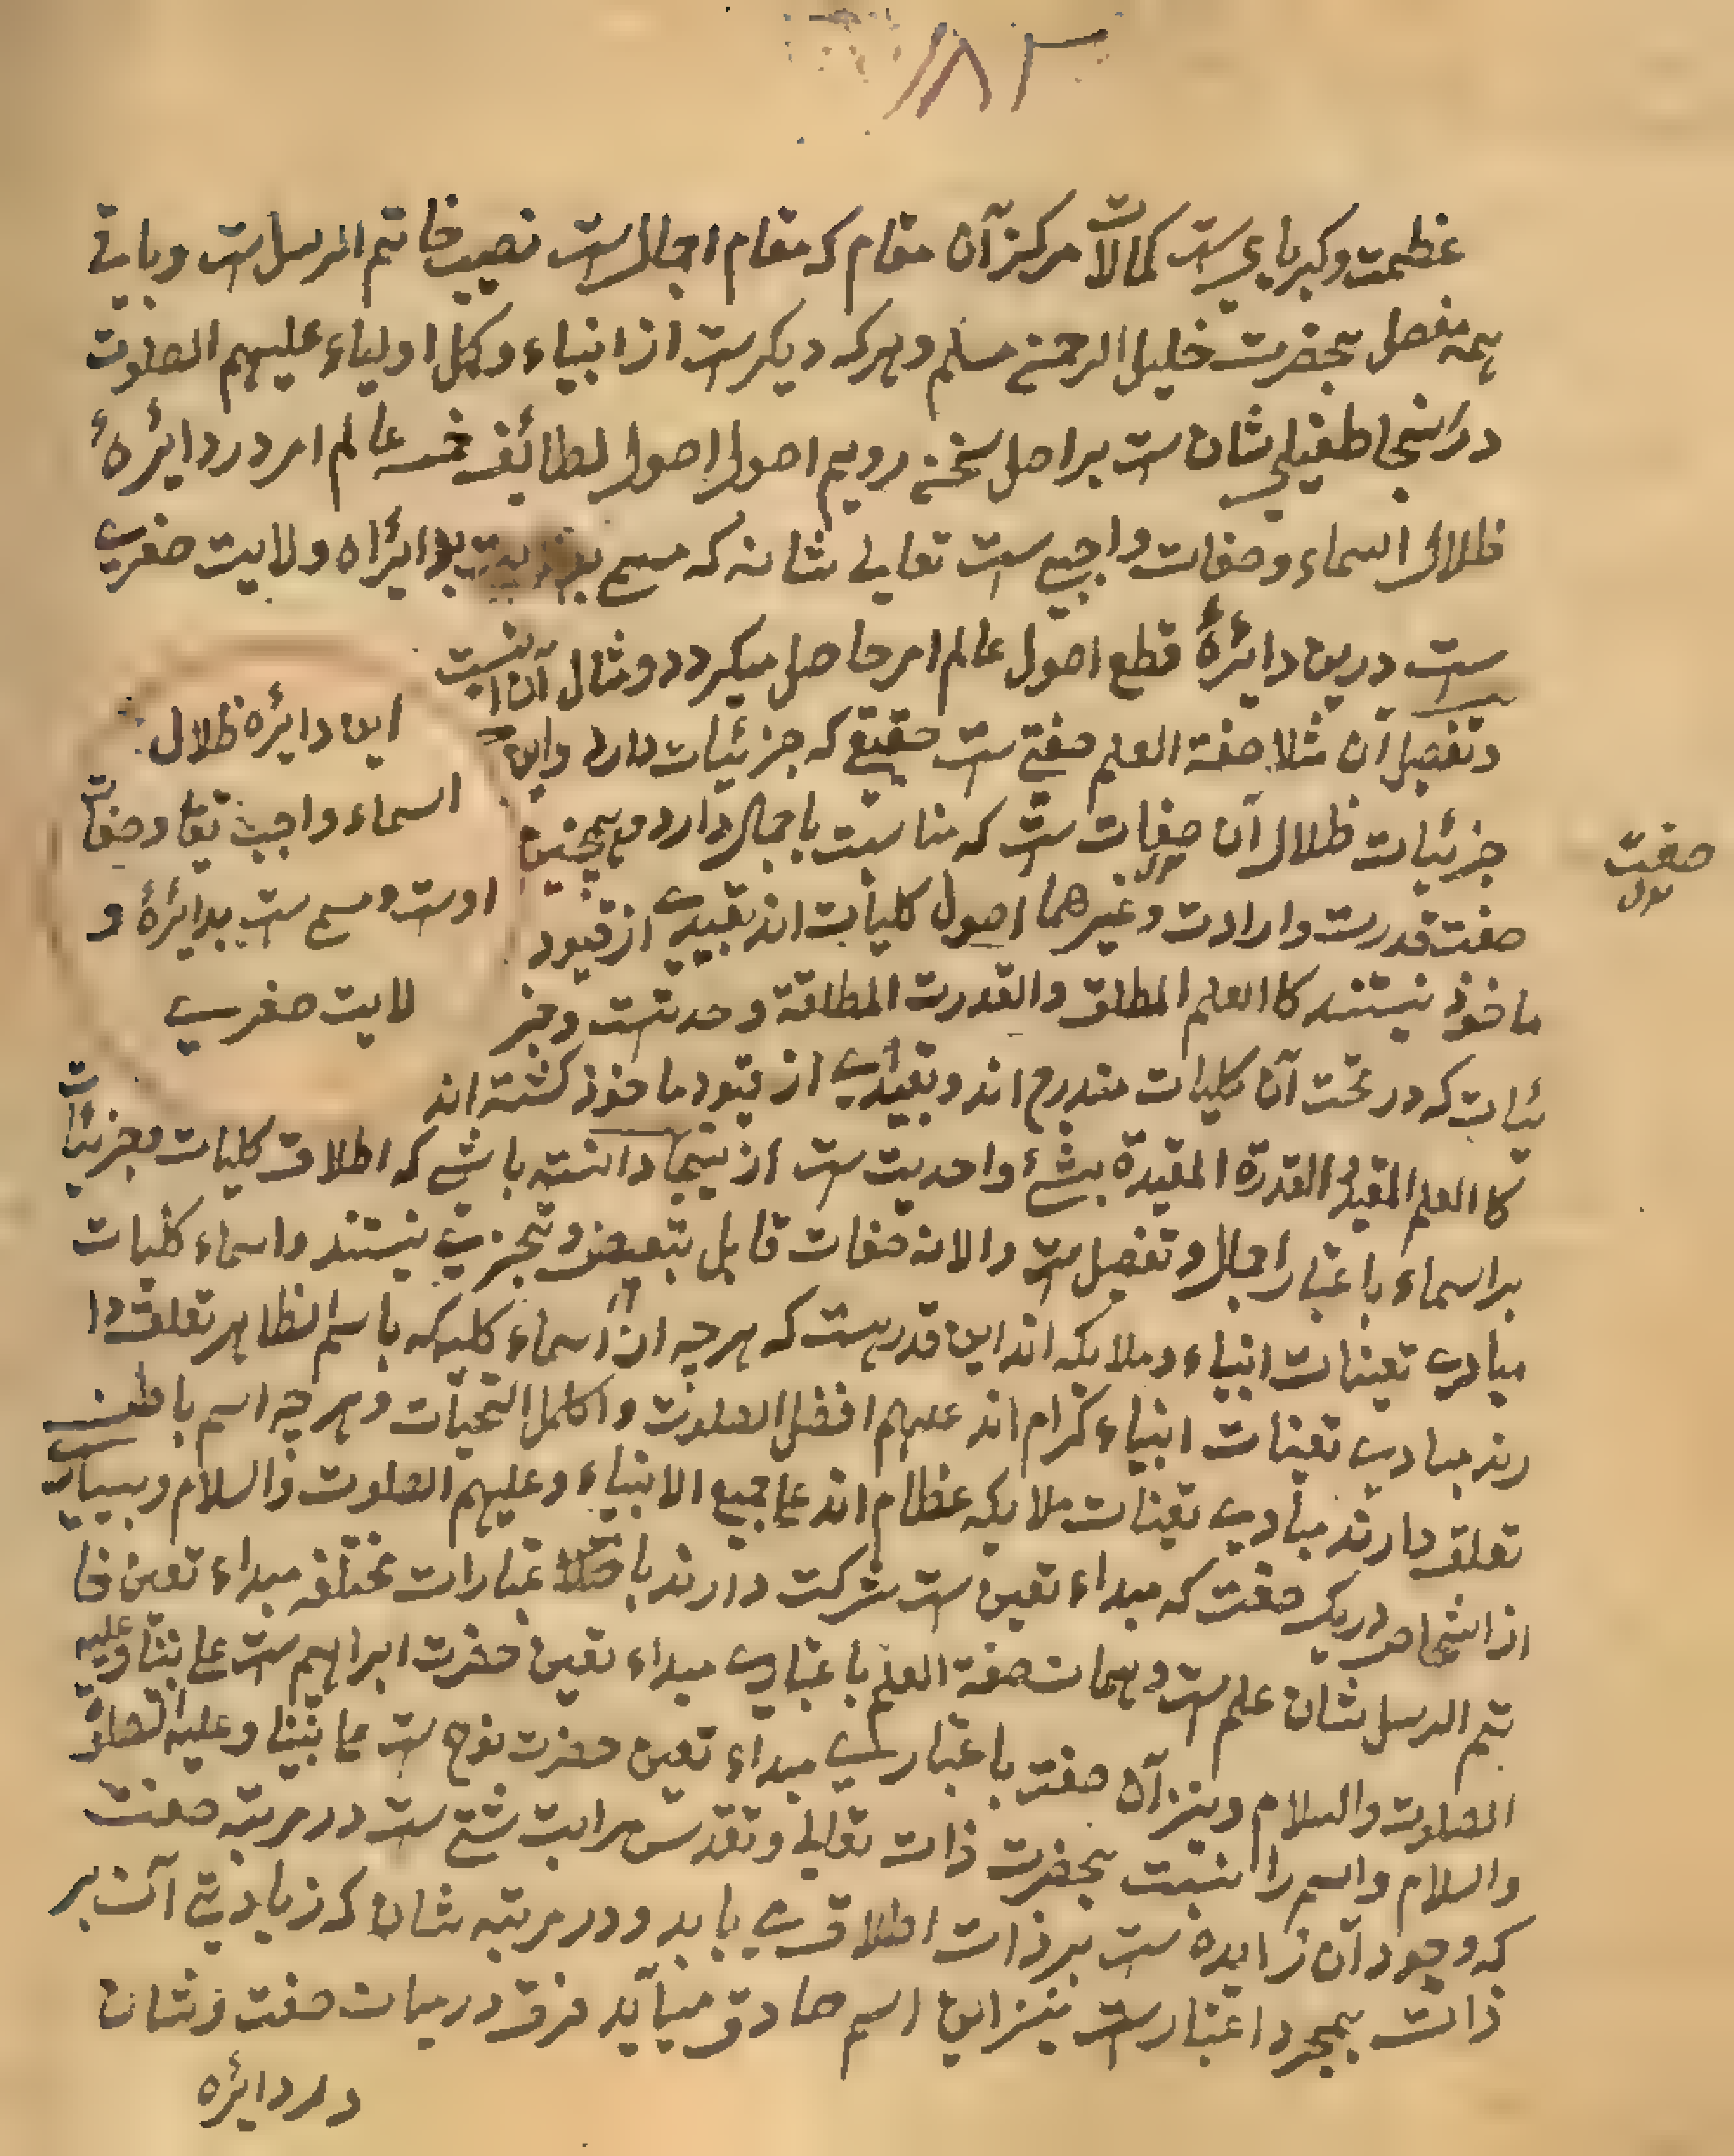 ١٨٣
عظمت وکبریایی ست کمالات مرکز آن مقام که مقام اجمال ست نصیب خاتم المرسل ست وباقی
همه مفصل بحضرت خلیل الرحمن مسلم وهرکه دیکرست از انبیاء وکمل اولیاء علیهم الصلوت
درآنجا طفیلی شان ست براصل سخن رویم اصول اصول لطائف خمسه عالم امر در دایرهٔ
ظلال اسماء وصفات واجبی ست تعالی شانه که مسمی بدایرٔاه ولایت صغری
ست درین دایرهٔ قطع اصول عالم امر حاصل میکردد ومثال آن اینست
وتفصیل آن مثلا صفة العلم صفتی ست حقیقی که جزئیات دارد واین
جزئیات ظلال آن صفات ست که مناسبت باجمال دارد وهمچنین
صفت
صفت قدرت وارادت وغیرهما اصول کلیات اند بقیدی از قیود
ماخوذ نیستند کا العلم المطلق والقدرت المطلقة وحدتست وجز
ئیات که در تحت آن کلیات مندرج اند وبقیدی از قیود ماخوذ کشته اند
کا العلم المقید والقدرة المقیدة بشئ واحدیت ست ازینجا دانسته باشی که اطلاق کلیات وجزئیات
براسماء باعتبار اجمال وتفصیل ست والا نه صفات قابل تبعیض وتجزی نیستند واسماء کلیات
مبادی تعینات انبیاء وملایکه اند این قدر هست که هرچه از اسماء کلیه که باسم الظاهر تعلق دا
رند مبادی تعینات انبیاء کرام اند علیهم افضل الصلوت واکمل التحیات وهرچه اسم باطن
تعلق دارند مبادی تعینات ملایکه عظام اند علی جمیع الانبیاء وعلیهم الصلوت والسلام وبسیاری
از اشخاص در یک صفت که مبداء تعین ست شرکت دارند با عتبارات مختلفه مبداء تعین خا
تم الرسل شان علم ست وهمان صفة العلم باعتباری مبداء تعین حضرت ابراهیم ست علی نبینا وعلیه
الصلوت والسلام ونیز آن صفت باعتباری مبداء تعین حضرت نوح ست علی نبینا وعلیه الصلوة
والسلام واسم را نسبت بحضرت ذات تعالی وتقدس مراتب شتی ست در مرتبه صفت
که وجود آن زایده ست بر ذات اطلاق می یابد ودر مرتبه شان که زیادتی آن بر
ذات بمجرد اعتبارست نیز این اسم صادق میآید فرق درمیان صفت وشان
در دایره
این دایره ظلال
اسماء واجب تعا وصفات
اوست ومسمی ست بدایرهٔ و
لایت صغری